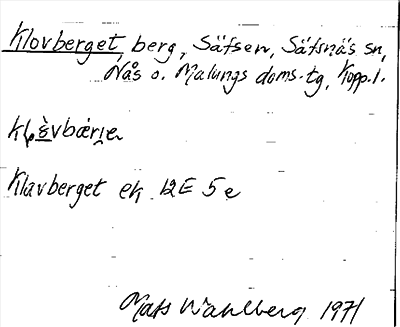 Klovberget, berg, Säfsen, Säfsnäs sn,
Nås o. Malungs doms.tg, Kopp.l.
Klavberget ek 12E 5e
Mats Wahlberg 1971